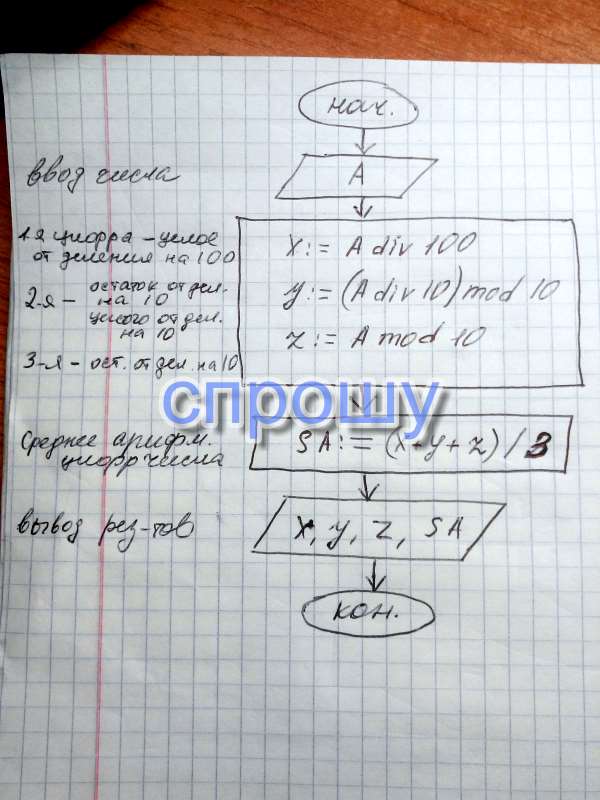 нач.
ввод числа
A
1-я цифра – целое
от деления на 100
X := A div 100
2-я – остаток от дел.
на 10
целого от дел.
на 10
y := (A div 10) mod 10
z := A mod 10
3-я – ост. от дел. на 10
спрошу
Среднее арифм.
цифр числа
SA := (x+y+z)/3
вывод рез-тов
X, y, Z, SA
кон.